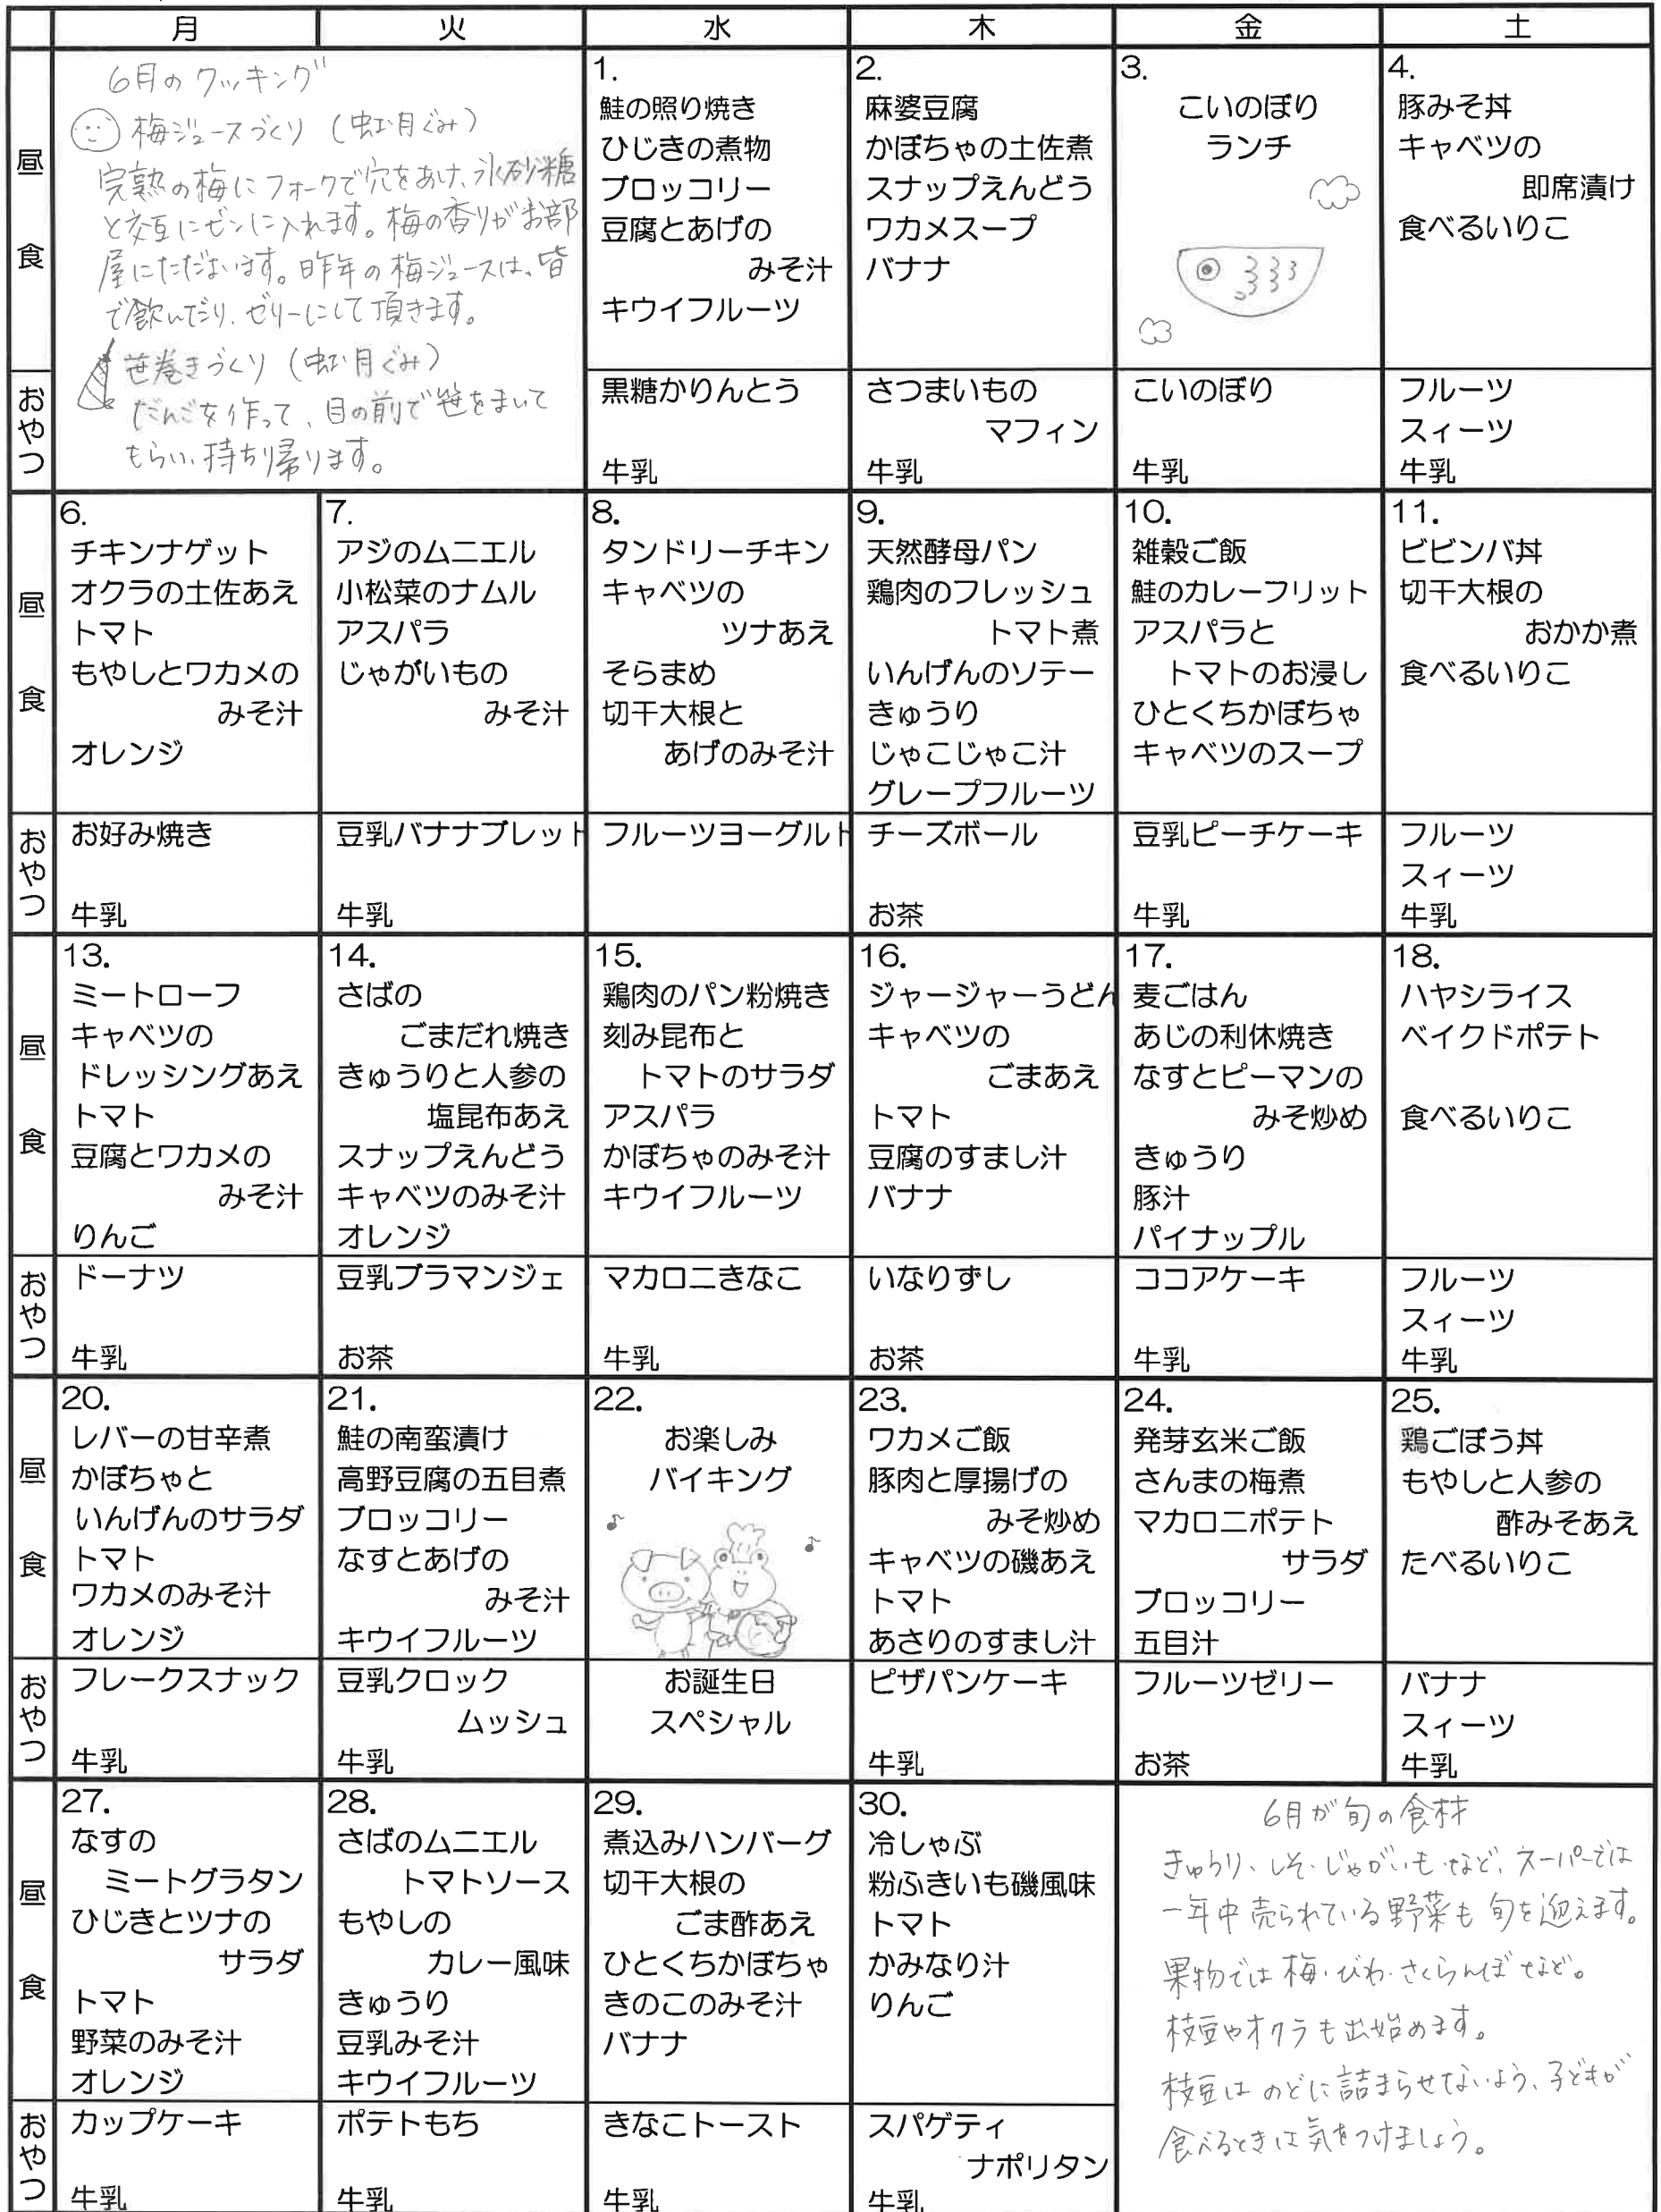 月
火
水
木
金
土
昼食
6月のクッキング
梅ジュースづくり (虹お月ぐみ)
完熟の梅にフォークで穴をあけ、氷砂糖
と交互にビンに入れます。梅の香りがお部
屋にただよいます。昨年の梅ジュースは、皆
で飲んだり、ゼリーにして頂きます。
笹巻きづくり (虹お月ぐみ)
だんごを作って、目の前で笹をまいて
もらい、持ち帰ります。
1.
鮭の照り焼き
ひじきの煮物
ブロッコリー
豆腐とあげの
みそ汁
キウイフルーツ
2.
麻婆豆腐
かぼちゃの土佐煮
スナップえんどう
ワカメスープ
バナナ
3.
こいのぼり
ランチ
4.
豚みそ丼
キャベツの
即席漬け
食べるいりこ
おやつ
黒糖かりんとう
牛乳
さつまいもの
マフィン
牛乳
こいのぼり
牛乳
フルーツ
スィーツ
牛乳
昼食
6.
チキンナゲット
オクラの土佐あえ
トマト
もやしとワカメの
みそ汁
オレンジ
7.
アジのムニエル
小松菜のナムル
アスパラ
じゃがいもの
みそ汁
8.
タンドリーチキン
キャベツの
ツナあえ
そらまめ
切干大根と
あげのみそ汁
9.
天然酵母パン
鶏肉のフレッシュ
トマト煮
いんげんのソテー
きゅうり
じゃこじゃこ汁
グレープフルーツ
10.
雑穀ご飯
鮭のカレーフリット
アスパラと
トマトのお浸し
ひとくちかぼちゃ
キャベツのスープ
11.
ビビンバ丼
切干大根の
おかか煮
食べるいりこ
おやつ
お好み焼き
牛乳
豆乳バナナブレッド
牛乳
フルーツヨーグルト
チーズボール
お茶
豆乳ピーチケーキ
牛乳
フルーツ
スィーツ
牛乳
昼食
13.
ミートローフ
キャベツの
ドレッシングあえ
トマト
豆腐とワカメの
みそ汁
りんご
14.
さばの
ごまだれ焼き
きゅうりと人参の
塩昆布あえ
スナップえんどう
キャベツのみそ汁
オレンジ
15.
鶏肉のパン粉焼き
刻み昆布と
トマトのサラダ
アスパラ
かぼちゃのみそ汁
キウイフルーツ
16.
ジャージャーうどん
キャベツの
ごまあえ
トマト
豆腐のすまし汁
バナナ
17.
麦ごはん
あじの利休焼き
なすとピーマンの
みそ炒め
きゅうり
豚汁
パイナップル
18.
ハヤシライス
ベイクドポテト
食べるいりこ
おやつ
ドーナツ
牛乳
豆乳ブラマンジェ
お茶
マカロニきなこ
牛乳
いなりずし
お茶
ココアケーキ
牛乳
フルーツ
スィーツ
牛乳
昼食
20.
レバーの甘辛煮
かぼちゃと
いんげんのサラダ
トマト
ワカメのみそ汁
オレンジ
21.
鮭の南蛮漬け
高野豆腐の五目煮
ブロッコリー
なすとあげの
みそ汁
キウイフルーツ
22.
お楽しみ
バイキング
23.
ワカメご飯
豚肉と厚揚げの
みそ炒め
キャベツの磯あえ
トマト
あさりのすまし汁
24.
発芽玄米ご飯
さんまの梅煮
マカロニポテト
サラダ
ブロッコリー
五目汁
25.
鶏ごぼう丼
もやしと人参の
酢みそあえ
たべるいりこ
おやつ
フレークスナック
牛乳
豆乳クロック
ムッシュ
牛乳
お誕生日
スペシャル
ピザパンケーキ
牛乳
フルーツゼリー
お茶
バナナ
スィーツ
牛乳
昼食
27.
なすの
ミートグラタン
ひじきとツナの
サラダ
トマト
野菜のみそ汁
オレンジ
28.
さばのムニエル
トマトソース
もやしの
カレー風味
きゅうり
豆乳みそ汁
キウイフルーツ
29.
煮込みハンバーグ
切干大根の
ごま酢あえ
ひとくちかぼちゃ
きのこのみそ汁
バナナ
30.
冷しゃぶ
粉ふきいも磯風味
トマト
かみなり汁
りんご
6月が旬の食材
きゅうり、しそ・じゃがいも など、スーパーでは
一年中売られている野菜も旬を迎えます。
果物では梅・びわ・さくらんぼなど。
枝豆やオクラも出始めます。
枝豆はのどに詰まらせないよう、子どもが
食べるときは気をつけましょう。
おやつ
カップケーキ
牛乳
ポテトもち
牛乳
きなこトースト
牛乳
スパゲティ
ナポリタン
牛乳